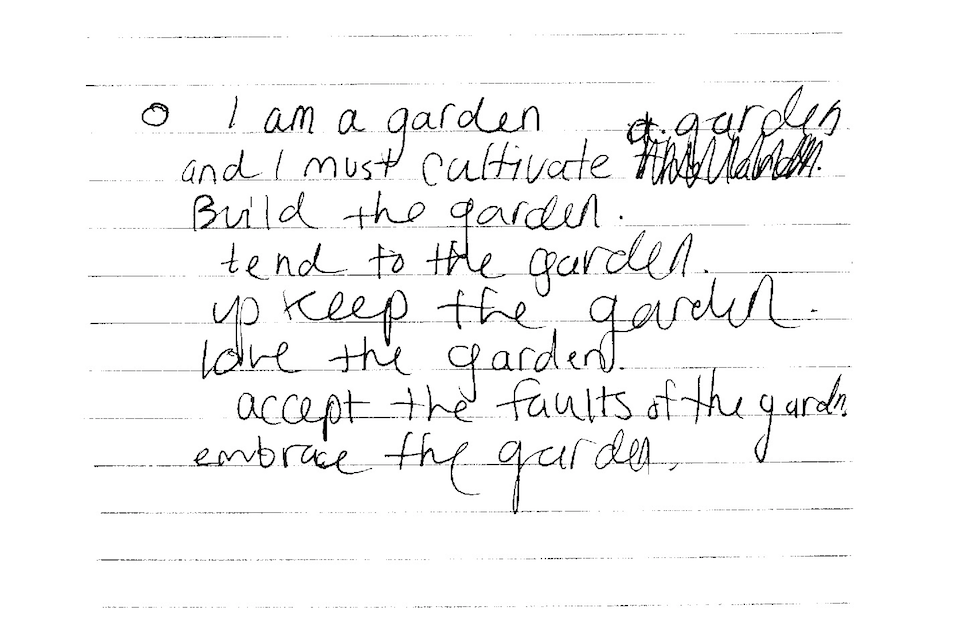 I am a garden
and I must cultivate a garden
Build the garden.
tend to the garden.
upkeep the garden.
love the garden.
accept the faults of the gardn.
embrace the garden.